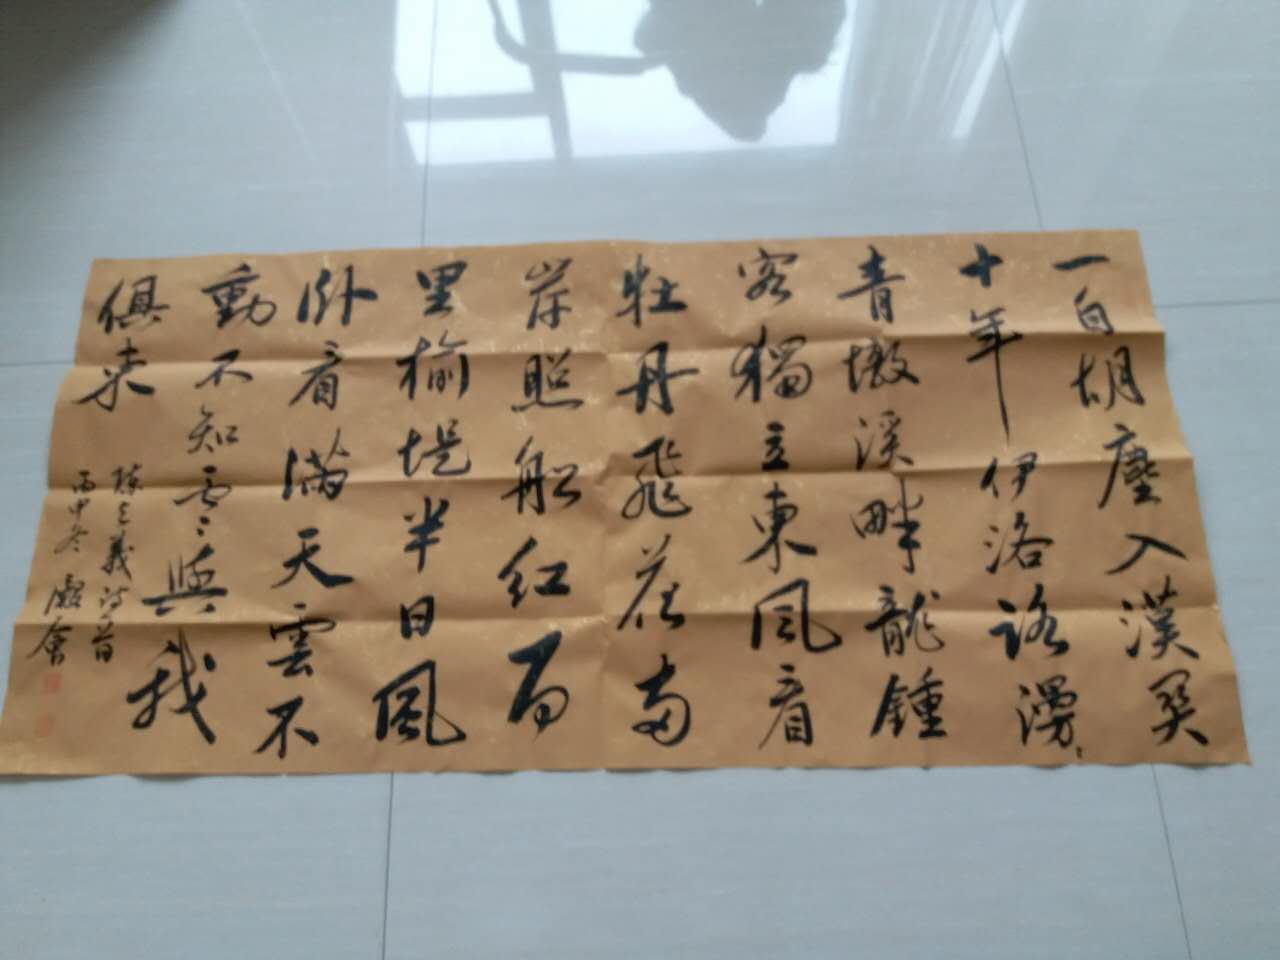 一自胡塵入漢關
十年伊洛路漫々
青墩溪畔龍鍾
客獨立東風看
牡丹飛花兩
岸照船紅百
里榆堤半日風
卧看滿天雲不
動不知雲與我
俱東
陳与義詩二首
丙申冬